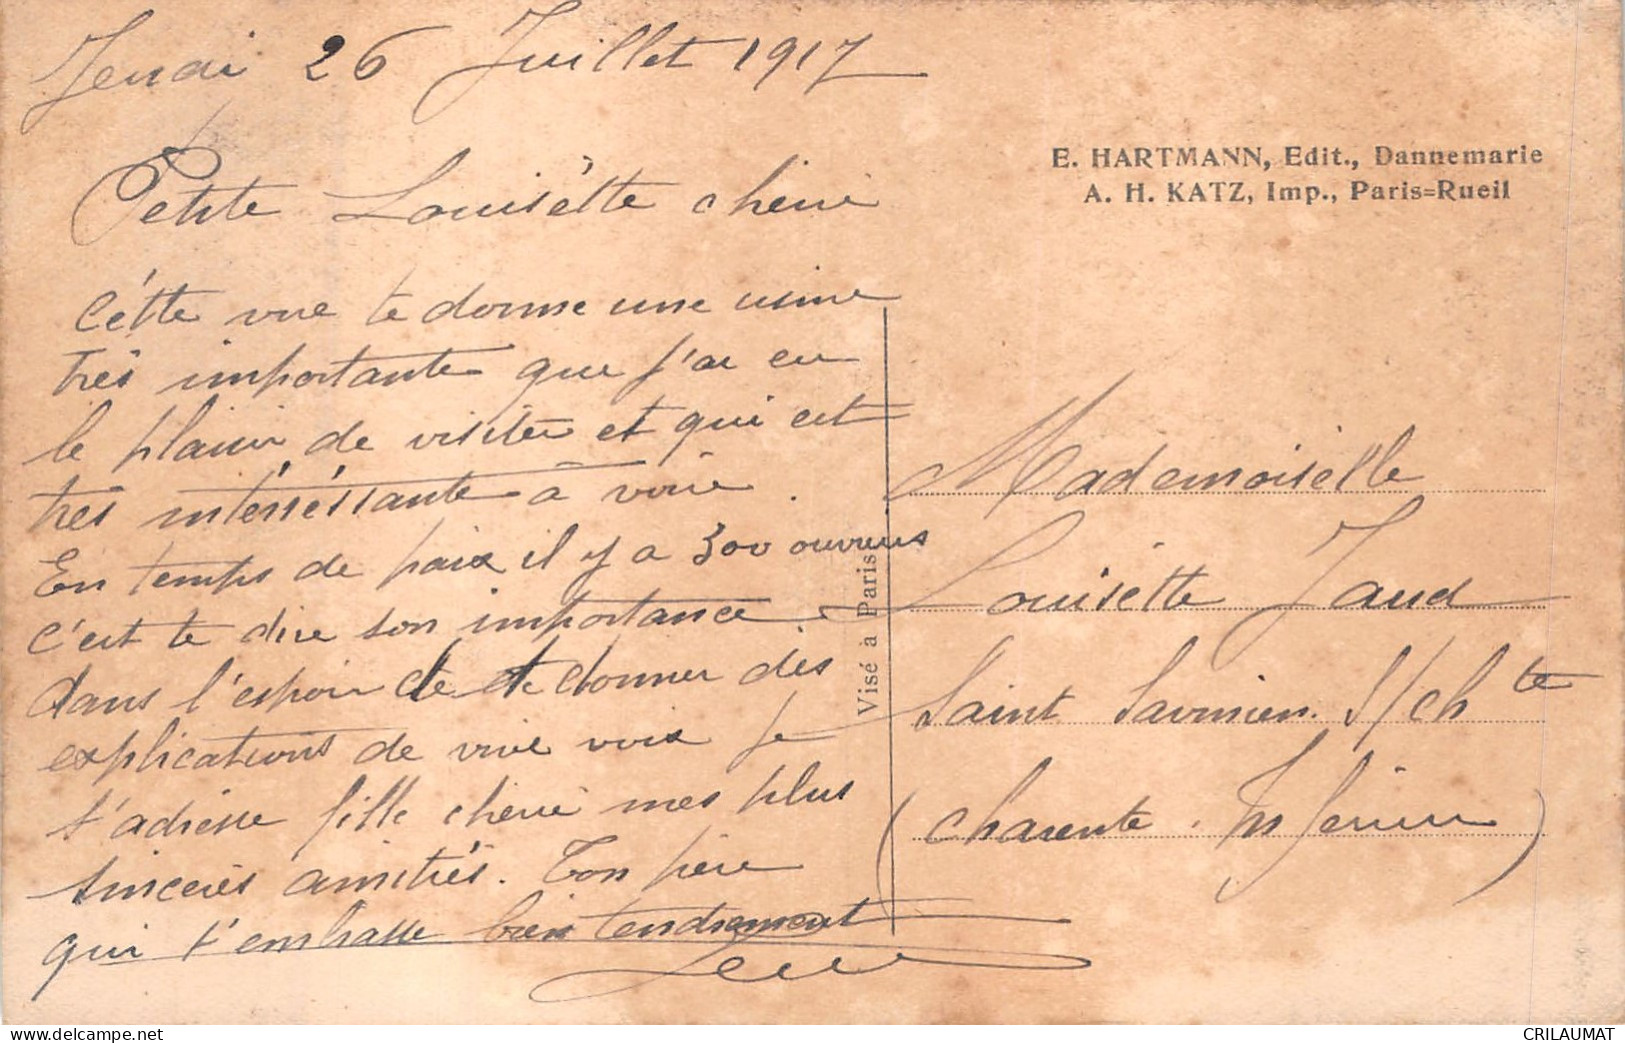 Jeudi 26 Juillet 1917
Petite Louisètte cherie
Cétte vue te donne une usine
très importante que j'ai eu
le plaisir de visiter et qui est
très intéréssante à voir.
En temps de paix il y a 300 ouvriers
c'est te dire son importance
dans l'espoir de te donner des
explications de vive voix Je
t'adresse fille cherie mes plus
sinceres amitiés. Ton père
qui t'embrasse bien tendrement
E. HARTMANN, Edit., Dannemarie
A. H. KATZ, Imp., Paris=Rueil
Visé à Paris
Mademoiselle
Louisètte Jaud
Saint Savinien. S/Chte
(Charente. Inférieure)
delcampe.net
CRILAUMAT